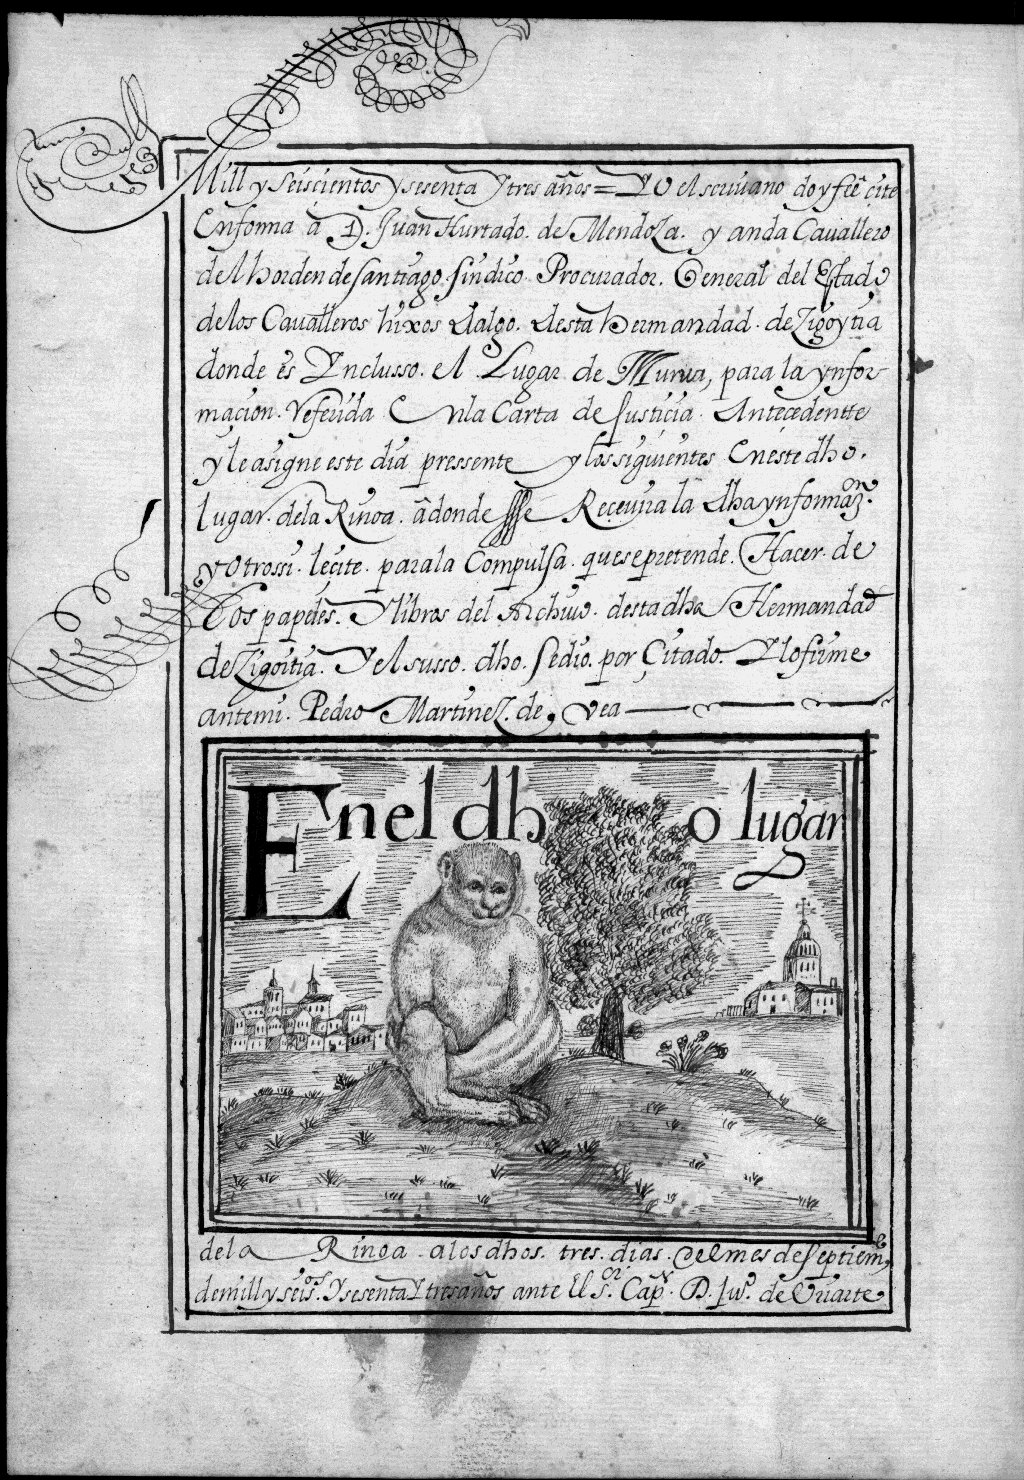 Mill y seiscientos y sesenta Y tres años = YO el scriuano doy feê cite
Enforma â D. Juan Hurtado. de MendoZa. y anda Cauallero
del horden de santiago. sindico. Procurador. General del Estado
de los Caualleros hixos dalgo. desta hermandad. de Zigoytia
donde es Ynclusso. el Lugar de Murua, para la ynfor-
macion. Referida En la Carta de Justicia. Antecedentte
y le asigne este dia pressente y los siguientes En este dho.
lugar. de la Rinoa. âdonde sse Receuira la dha ynformaZon.
y otrossi. le cite. para la Compulsa. que se pretende. Hacer. de
Los papeles. Y libros del Archiuo. desta dha Hermandad
de Zigoitia. Y el susso. dho. se dio. por Çitado. Y lo firme
antemi. Pedro MartineZ. de, Vea
En el dho lugar
de la Rinoa. a los dhos. tres. dias. del mes de septieme,
de mill y seisos. Y sesenta Y tres años ante El Sor. Capn. D. Juo. de Vriarte